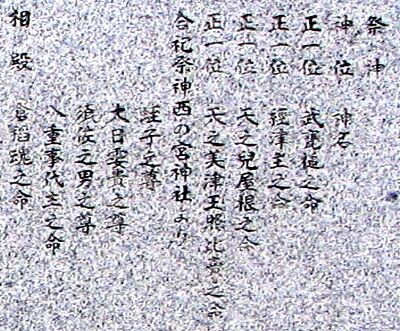 祭神
神位 神名
正一位 武甕槌之命
正一位 經津主之命
正一位 天之兒屋根之命
正一位 天之美津玉照比賣之命
合祀祭神西の宮神社より
蛭子之尊
大日孁貴之尊
須佐之男之尊
八重事代主之命
相殿 倉稻魂之命